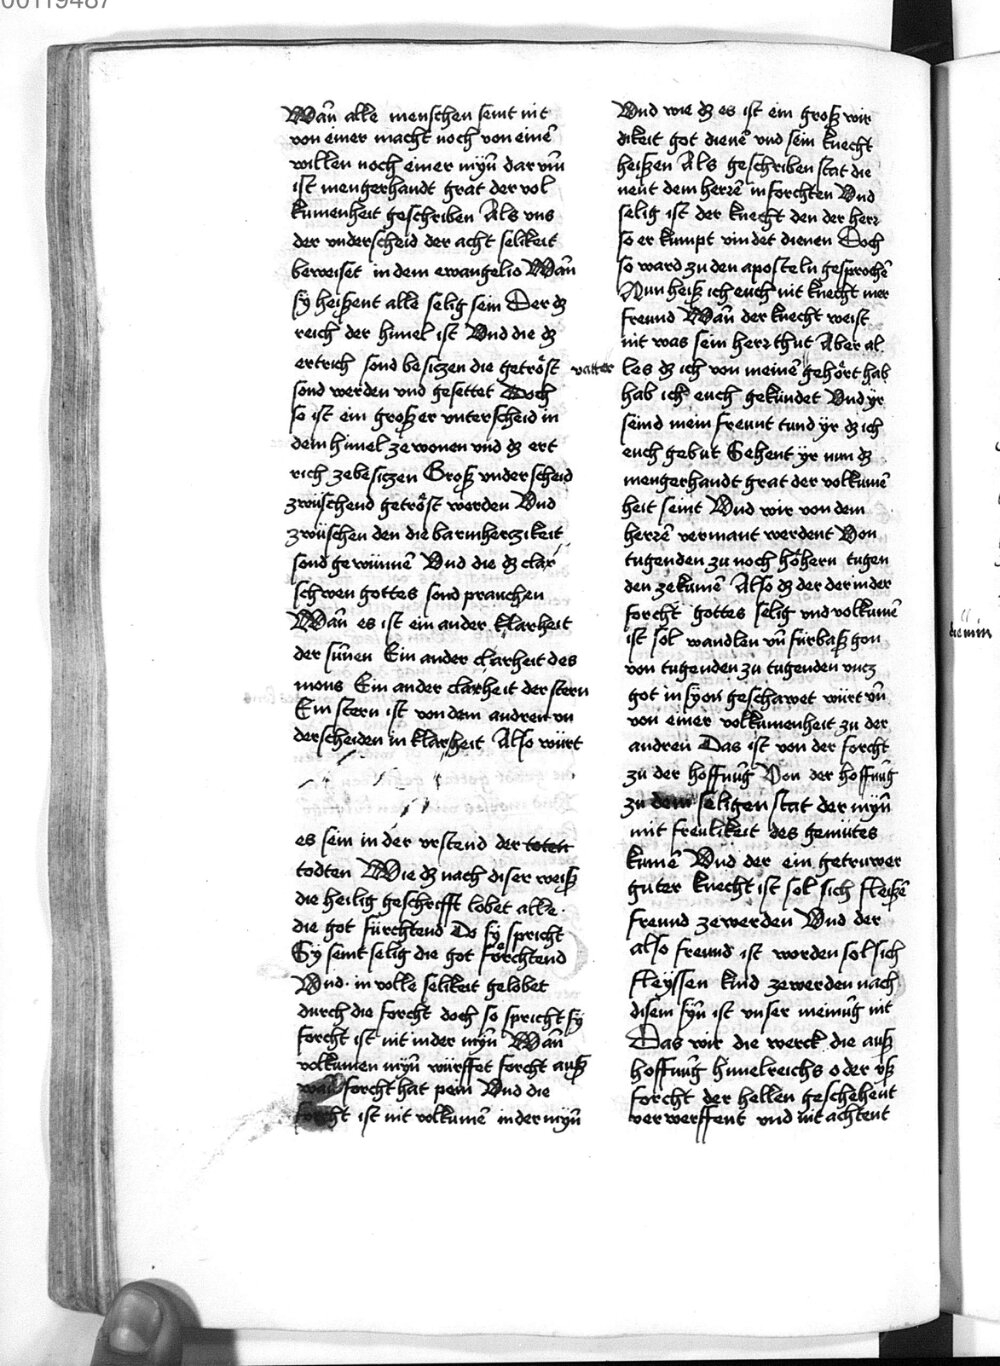 00119487
Wan̄ alle menschen seint nit
von einer macht noch von einē
willen noch einer myn̄ dar vm̄
ist mengerhandt grat der vol
kumenheit geschriben Als vns
der vnderscheid der acht selikeit
berweiset in dem ewangelio Wan̄
sÿ heissent alle selig sein Der dz
reich der himel ist Vnd die dz
ertrich sond besitzen die getröst
sond werden vnd gesettet Doch
so ist ein grosser vnterscheid in
dem himel ze wonen vnd dz ert
rich zebesitzen Groß vnderscheid
zwüschend getröst werden Vnd
zwüschen den die barmherzikeit
sond gewūnnē Vnd die dz clar
schwen gottes sond prauchen
Wan̄ es ist ein ander klarheit
der sūnen Ein ander clarheit des
mons Ein ander clarheit der stern
Ein stern ist von dem andren vn
derscheiden in klarheit Also würt
es sein in der vrstend der toten
todten Wie dz nach diser weiß
die heilig geschrifft lobet alle
die got fürchtend Do sÿ spricht
Sÿ seint selig die got förchtend
Vnd in volle selikeit gelobet
durch die forcht doch so spricht sÿ
forcht ist nit in der myn̄ Wan̄
volkumen myn̄ würffet forcht auß
wan̄ forcht hat pein Vnd die
forcht ist nit volkumē in der myn̄
Vnd wie dz es ist ein groß wir
dikeit got dienē vnd sein knecht
heissen Als geschriben stat die
nent dem herrē in forchten Vnd
selig ist der knecht den der herr
so er kumpt vindet dienen Doch
so ward zu den aposteln gesprochē
Nun heiß ich euch nit knecht mer
freund Wan̄ der knecht weist
nit was sein herr thut Aber al
vatter les dz ich von meinē gehört hab
hab ich euch gekündet Vnd ÿr
seind mein freunt tund ÿr dz ich
euch gebut Sehent ÿr nun dz
mengerhandt grat der volkumē
heit seint Vnd wir von dem
herrē vermant werdent Von
tugenden zu noch höhern tugen
den zekumē Also dz der der in der
forcht gottes selig vnd volkumē
ist sol wandlen vn̄ fürbaß gon
von tugenden zu tugenden vntz
got in sÿon geschawet würt vn̄
von einer volkumenheit zu der
andren Das ist von der forcht
zu der hoffnūg Von der hoffnūg
zu dem seligen stat der myn̄
mit freulikeit des gemütes
kumē Vnd der ein getruwer
guter knecht ist sol sich fleissē
freund zewerden Vnd der
also freund ist worden sol sich
fleyssen kind zewerden nach
disem syn̄ ist vnser meinūg nit
Das wir die werck die auß
hoffnūg himelreichs oder vß
forcht der hellen geschehent
verwerffent vnd nit achtent